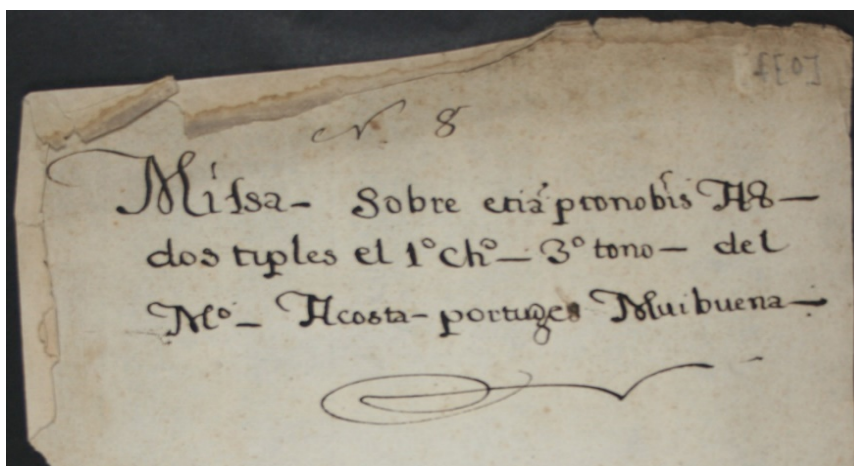 N. 8
Missa - Sobre etiá pronobis A 8 -
dos tiples el 1º chº - 3º tono - del
Mº - Acosta - portuges Mui buena -